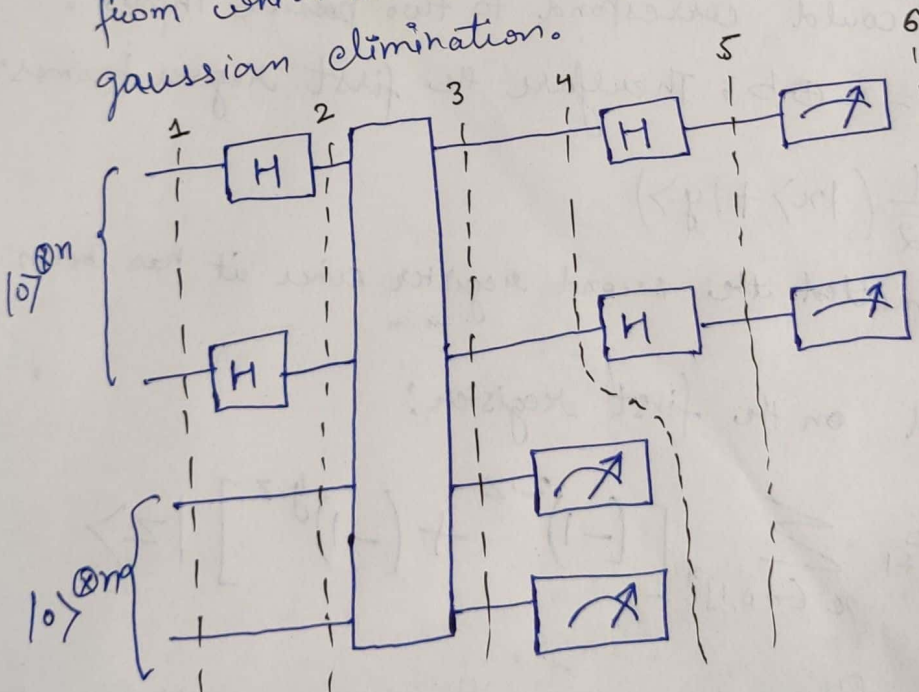 from
gaussian elimination.
1 2 3 4 5 6
H H
|0⟩⊗n
H H
|0⟩⊗n